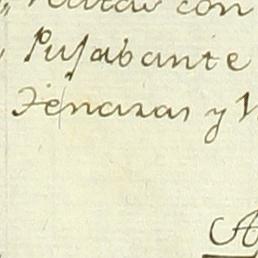 con
Pujabante
Tenazas y
A